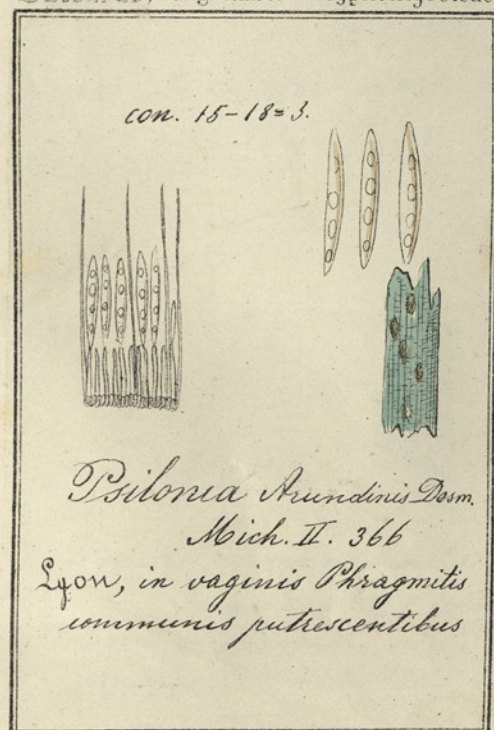 con. 15-18=3.
Psilonia Arundinis Desm.
Mich. II. 366
Lyon, in vaginis Phragmitis
communis putrescentibus